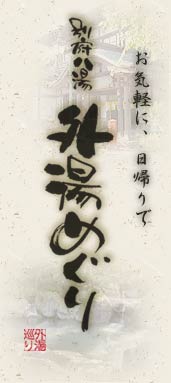 お気軽に、日帰りで
別府八湯
外湯めぐり
外湯
巡り